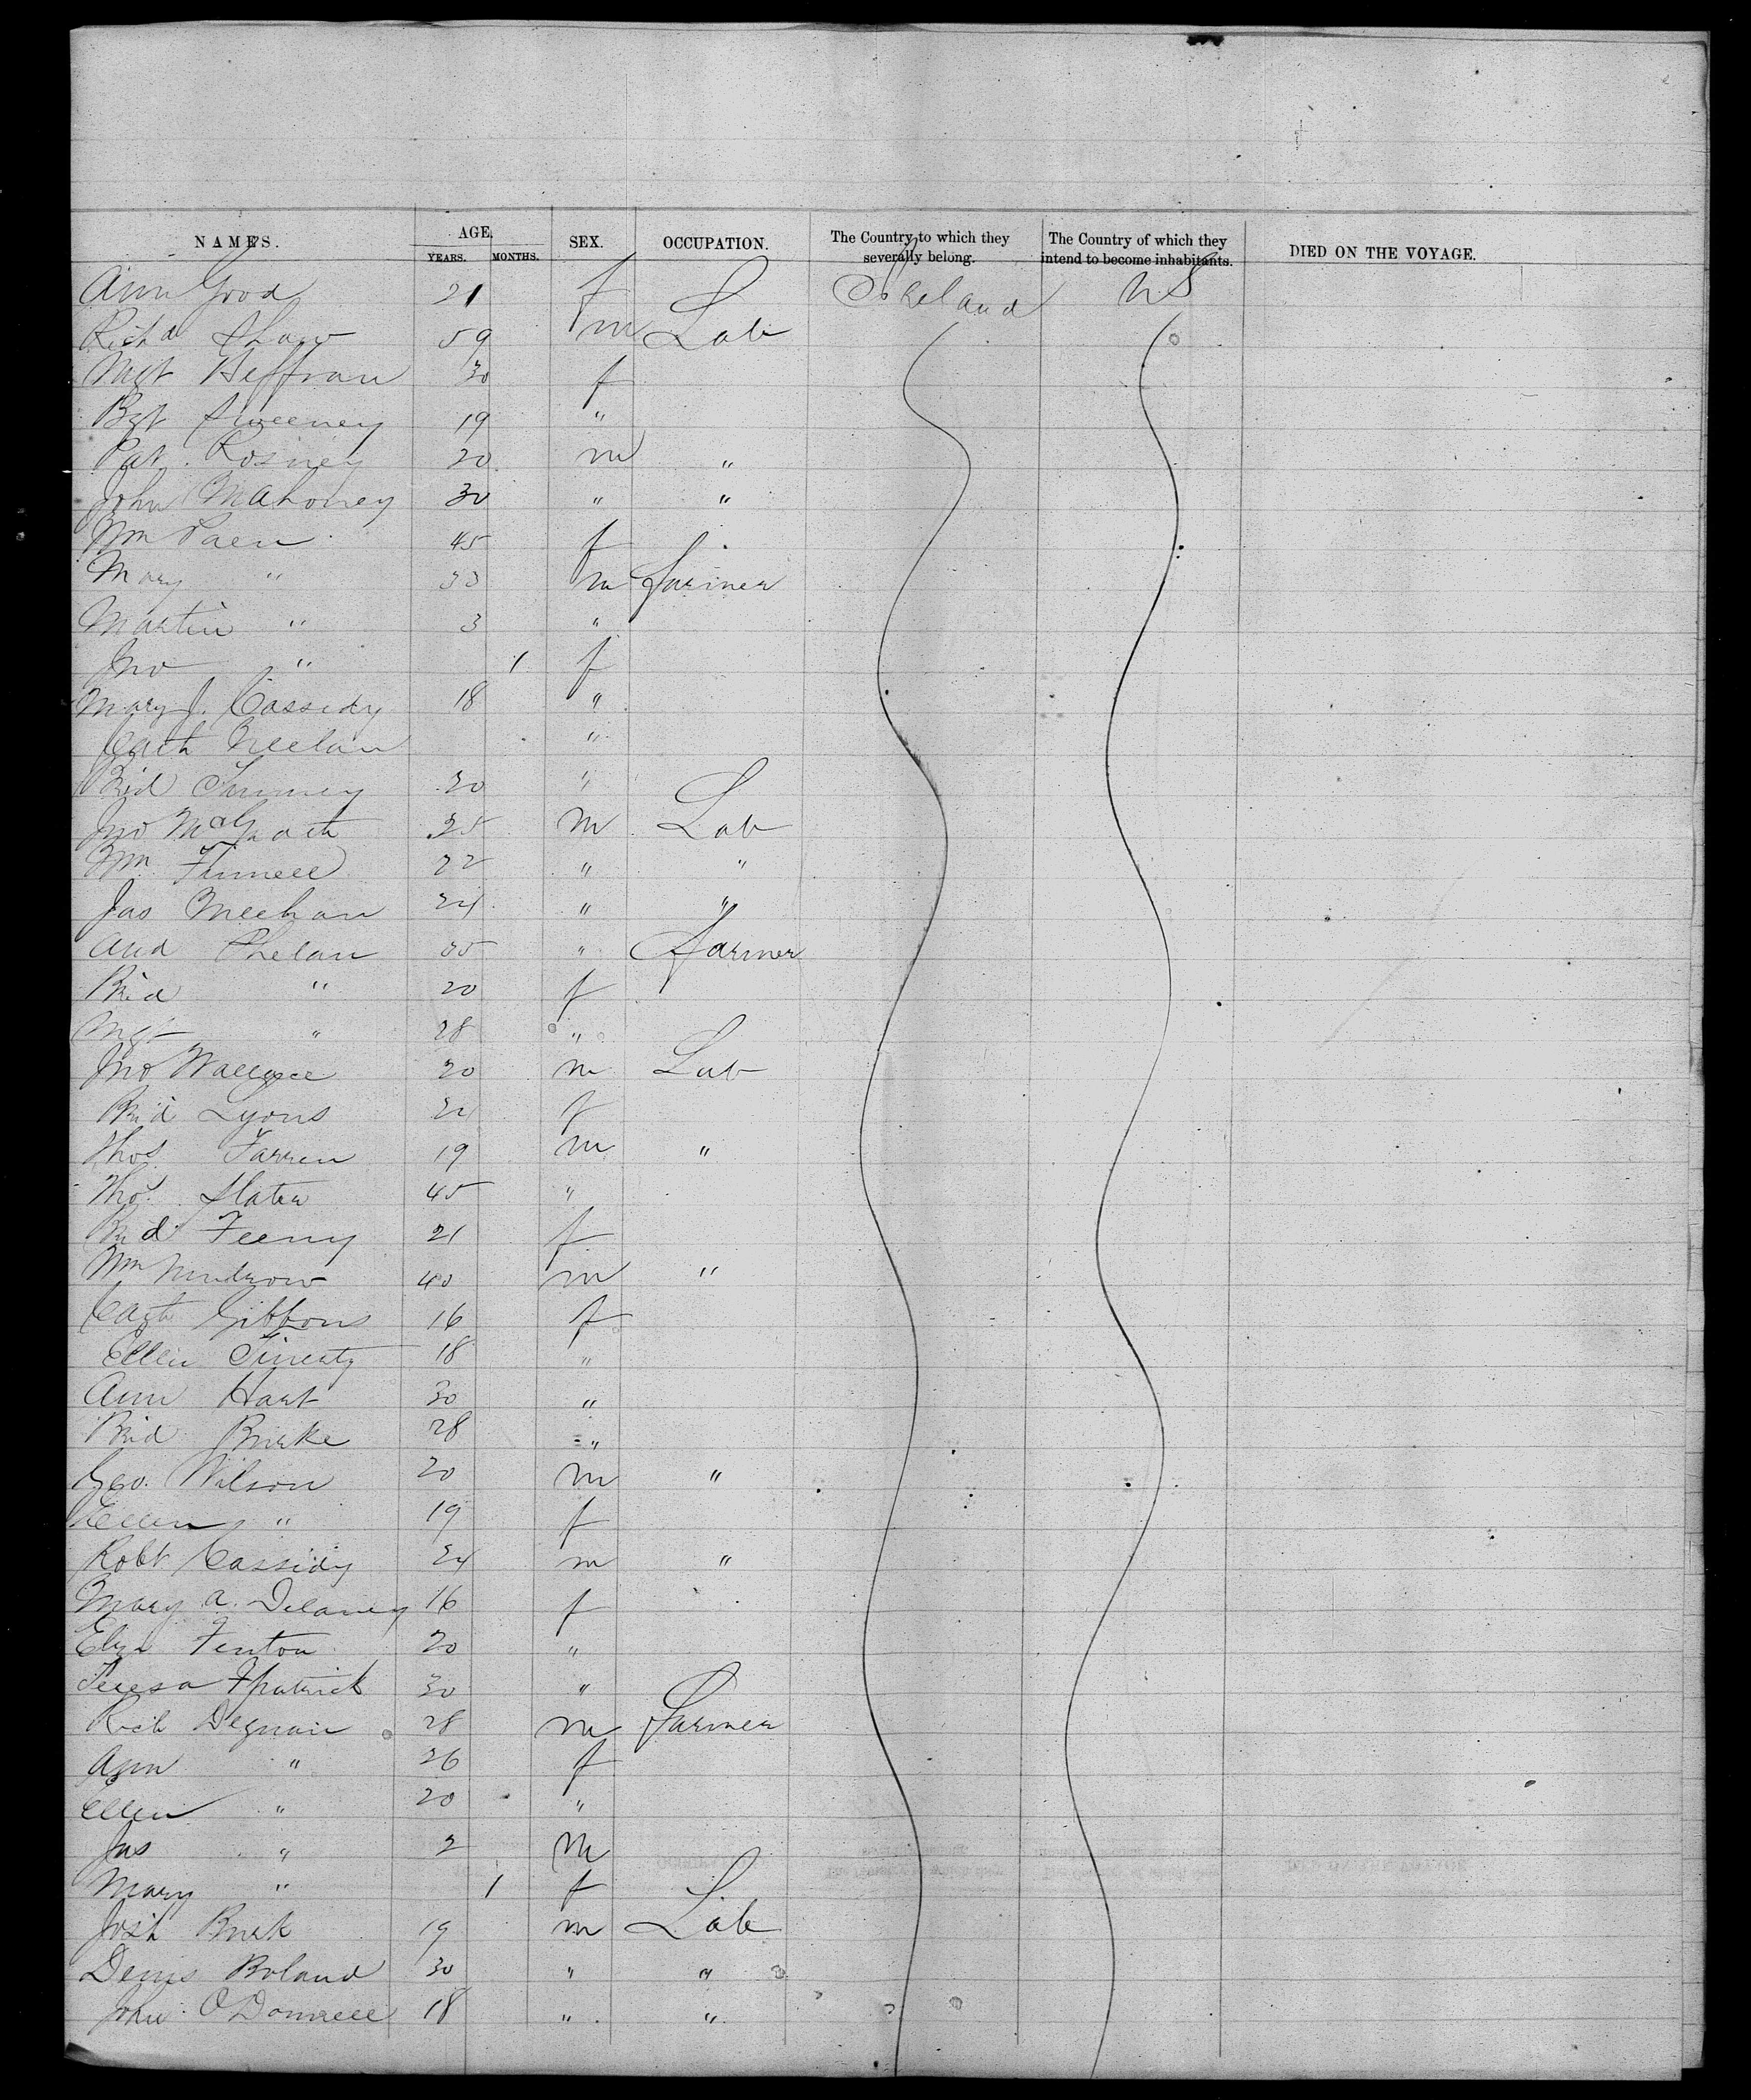 NAMES. AGE. YEARS. MONTHS. SEX. OCCUPATION. The Country to which they severally belong. The Country of which they intend to become inhabitants. DIED ON THE VOYAGE.
Ann Good 21 f Ireland US
Richd Shaw 59 m Lab
Mgt Heffran 30 f
Bgt Sweeney 19 "
Pat. Rosney 20 m "
John Mahoney 30 " "
Wm Paen 45 f
Mary " 33 m farmer
Martin " 3 "
Jno " 1 f
Mary J. Cassidy 18 "
Cath Neelan "
Brid 20 "
Jno McGrath 25 m Lab
Wm Finnell 22 " "
Jas Meehan 24 " "
And Phelan 35 " farmer
Brid " 20 f
Mgt " 28 "
Jno Wallace 20 m Lab
Brid Lyons f
Thos Farren 19 m "
Thos Slater 45 "
Brid Feeny 21 f
Wm 40 m "
Cath Gibbons 16 f
Ellen Finerty 18 "
Ann Hart 30 "
Brid Burke 28 "
Geo. Wilson 20 m "
Ellen " 19 f
Robt Cassidy 24 m "
Mary A. Delaney 16 f
Eliza Fenton 20 "
Teresa Fpatrick 30 "
Rich Degnan 28 m Farmer
Ann " 26 f
Ellen " 20 "
Jas " 2 m
Mary " 1 f
Josh Burk 19 m Lab
Denis Boland 30 " "
John O'Donnell 18 " "